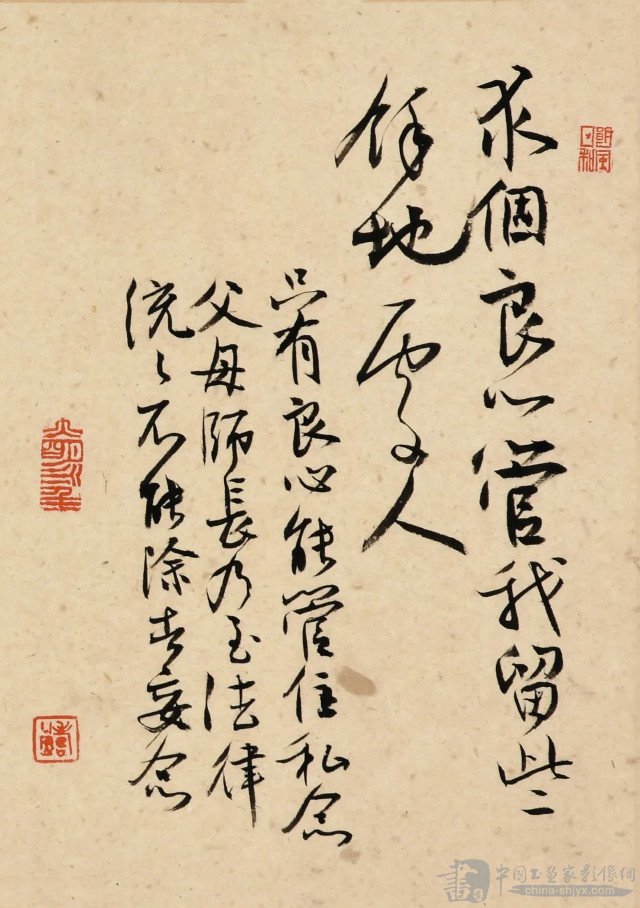 求個良心管我留些
餘地處人
只有良心能管住私念
父母師長乃至法律
統統不能除去妄念
中国书画家影像網
china-shjyx.com